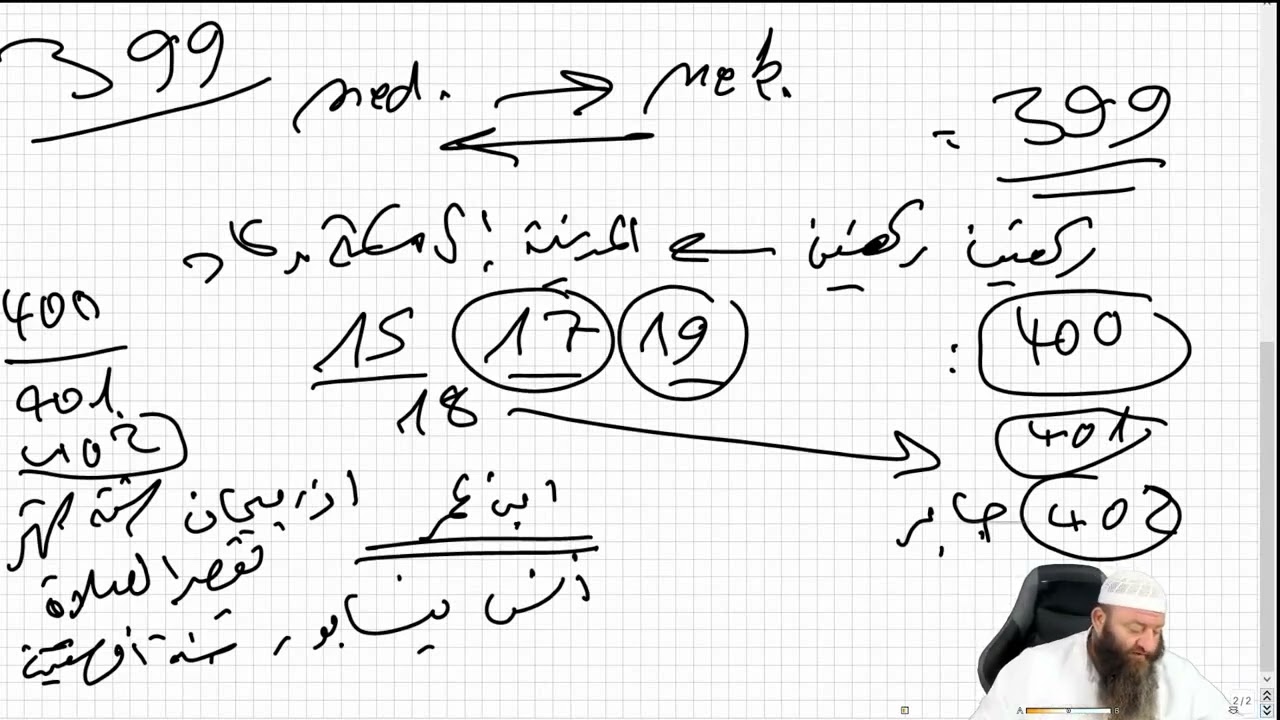 399 med. → mek. = 399
ركعتين ركعتين ← المدينة إلى مكة
400 15 17 19 : 400
401 18 → 401
402 جابر 402
ابن عمر اذربيجان ستة اشهر
يقصر الصلاة
أنس نيسابور سنة أو سنتين
2/2